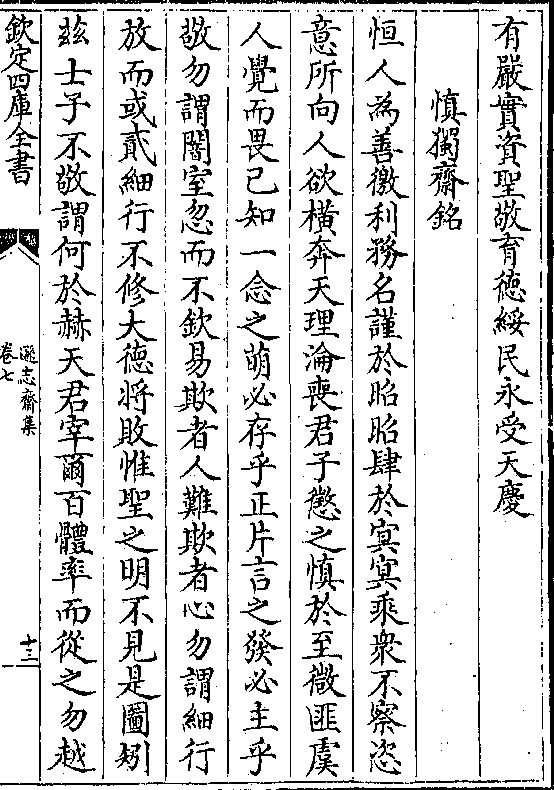 有嚴實資聖敬育德綏民永受天慶
慎獨齋銘
恒人為善徼利務名謹於昭昭肆於㝠㝠乘衆不察恣
意所向人欲横奔天理淪喪君子懲之慎於至微匪虞
人覺而畏已知一念之萌必存乎正片言之發必主乎
敬勿謂闇室忽而不欽易欺者人難欺者心勿謂細行
放而或貳細行不修大德将敗惟聖之明不見是圖矧
兹士子不敬謂何於赫天君宰爾百體率而從之勿越
欽定四庫全書
遜志齋集
卷七
十三